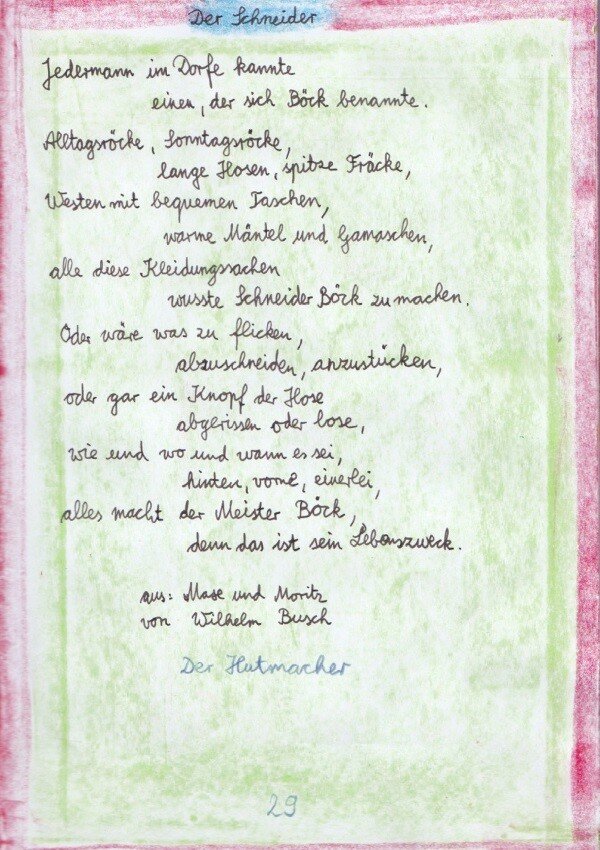 Der Schneider
Jedermann im Dorfe kannte
einen, der sich Böck benannte.
Alltagsröcke, Sonntagsröcke,
lange Hosen, spitze Fräcke,
Westen mit bequemen Taschen,
warme Mäntel und Gamaschen,
alle diese Kleidungssachen
wusste Schneider Böck zu machen.
Oder wäre was zu flicken,
abzuschneiden, anzustücken,
oder gar ein Knopf der Hose
abgerissen oder lose,
wie und wo und wann es sei,
hinten, vorne, einerlei,
alles macht der Meister Böck,
denn das ist sein Lebenszweck.
aus: Max und Moritz
von Wilhelm Busch
Der Hutmacher
29